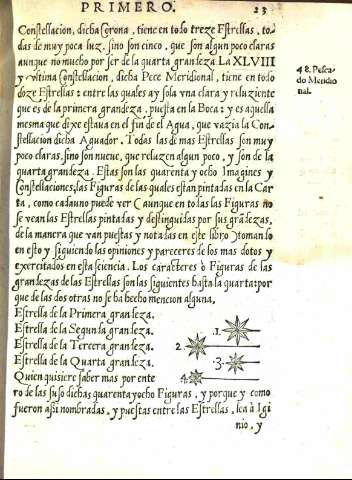 PRIMERO. 23
Constellacion, dicha Corona, tiene en todo treze Estrellas, to-
das de muy poca luz. sino son cinco, que son algun poco claras
aunque no mucho por ser de la quarta grandeza. La XLVIII
y vltima Constellacion, dicha Pece Meridional, tiene en todo
doze Estrellas: entre las quales ay sola vna clara y reluziente
que es de la primera grandeza, puesta en la Boca: y es aquella
mesma que dixe estaua en el fin de el Agua, que vazia la Con-
stellacion dicha Aguador. Todas las de mas Estrellas son muy
poco claras, sino son nueue, que reluzen algun poco, y son de la
quarta grandeza. Estas son las quarenta y ocho Imagines y
Constellaciones, las Figuras de las quales estan pintadas en la Car
ta, como cada uno puede ver (aunque en todas las Figuras no
se vean las Estrellas pintadas y destinguidas por sus grãdezas,
de la manera que van puestas y notadas en este libro) tomando
en esto y siguiendo las opiniones y pareceres de los mas dotos y
exercitados en esta sciencia. Los caracteres ò Figuras de las
grandezas de las Estrellas son las siguientes hasta la quarta: por
que de las dos otras no se ha hecho mencion alguna.
Estrella de la Primera grandeza.
Estrella de la Segunda grandeza. .1.
Estrella de la Tercera grandeza. 2.
Estrella de la Quarta grandeza. .3.
Quien quisiere saber mas por ente 4.
ro de las suso dichas quarenta y ocho Figuras, y porque y como
fueron assi nombradas, y puestas entre las Estrellas, lea à Igi
nio, y
48. Pesca-
do Meridio
nal.